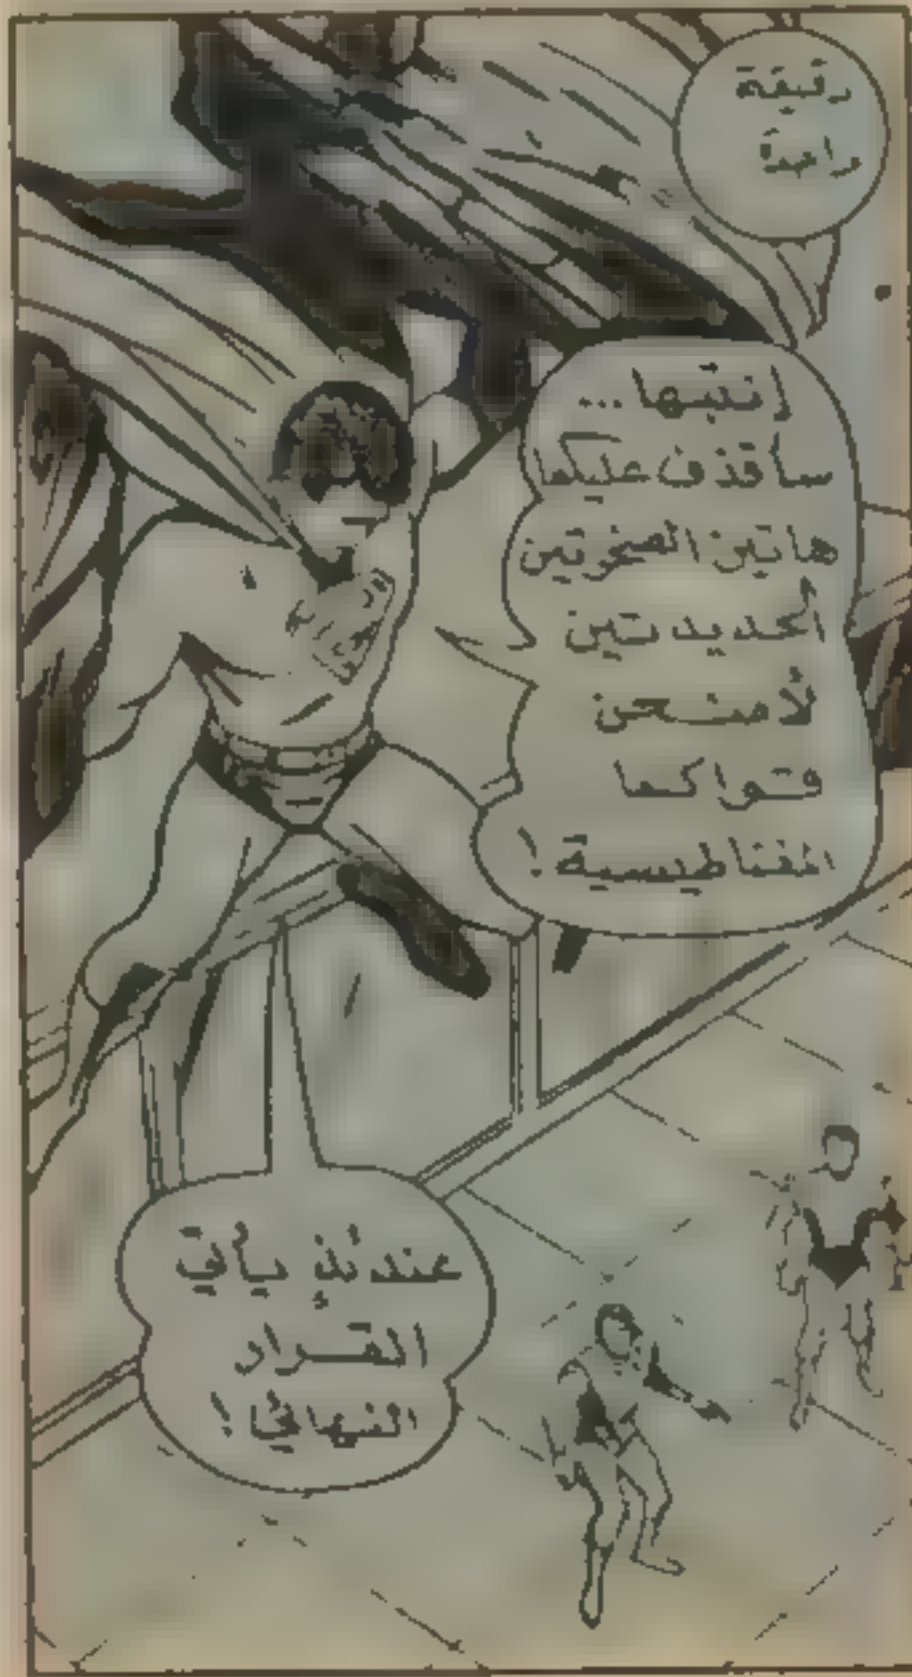 دقيقة
واحدة
إنتبها...
سأقذف عليكما
هاتين الصخرتين
الحديديتين
لأمتحن
قواكما
المغناطيسية!
عندئذٍ يأتي
القرار
النهائي!